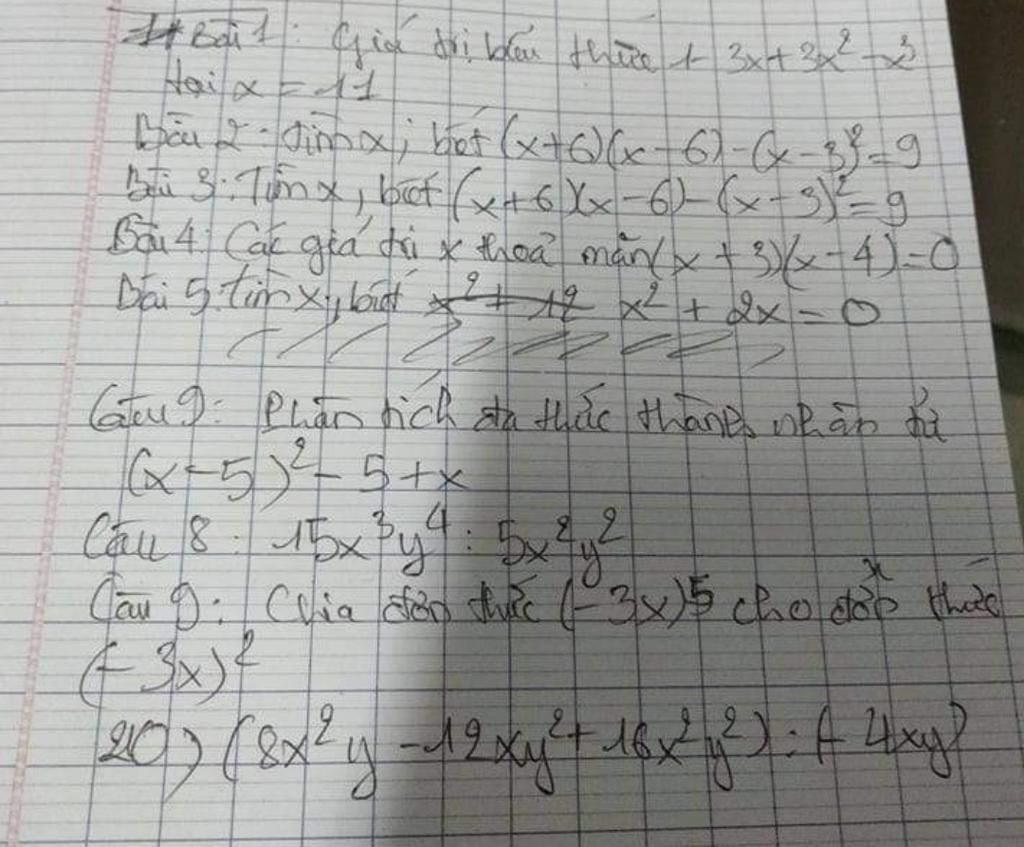 Bài 1: Giá trị biểu thức 1 - 3x + 3x² - x³
tại x = 11
Bài 2: tìm x, biết (x+6)(x-6)-(x-3)²=9
Bài 3: Tìm x, biết (x+6)(x-6)-(x-3)²=9
Bài 4: Các giá trị x thoả mãn (x+3)(x-4)=0
Bài 5: tìm x, biết x² + 2x = 0
Câu 9: Phân tích đa thức thành nhân tử
(x-5)² - 5 + x
Câu 8: 15x³y⁴ : 5x²y²
Câu 9: Chia đơn thức (-3x)5 cho đơn thức
(-3x)²
20) (8x²y - 12xy² + 16x²y²) : (-4xy)